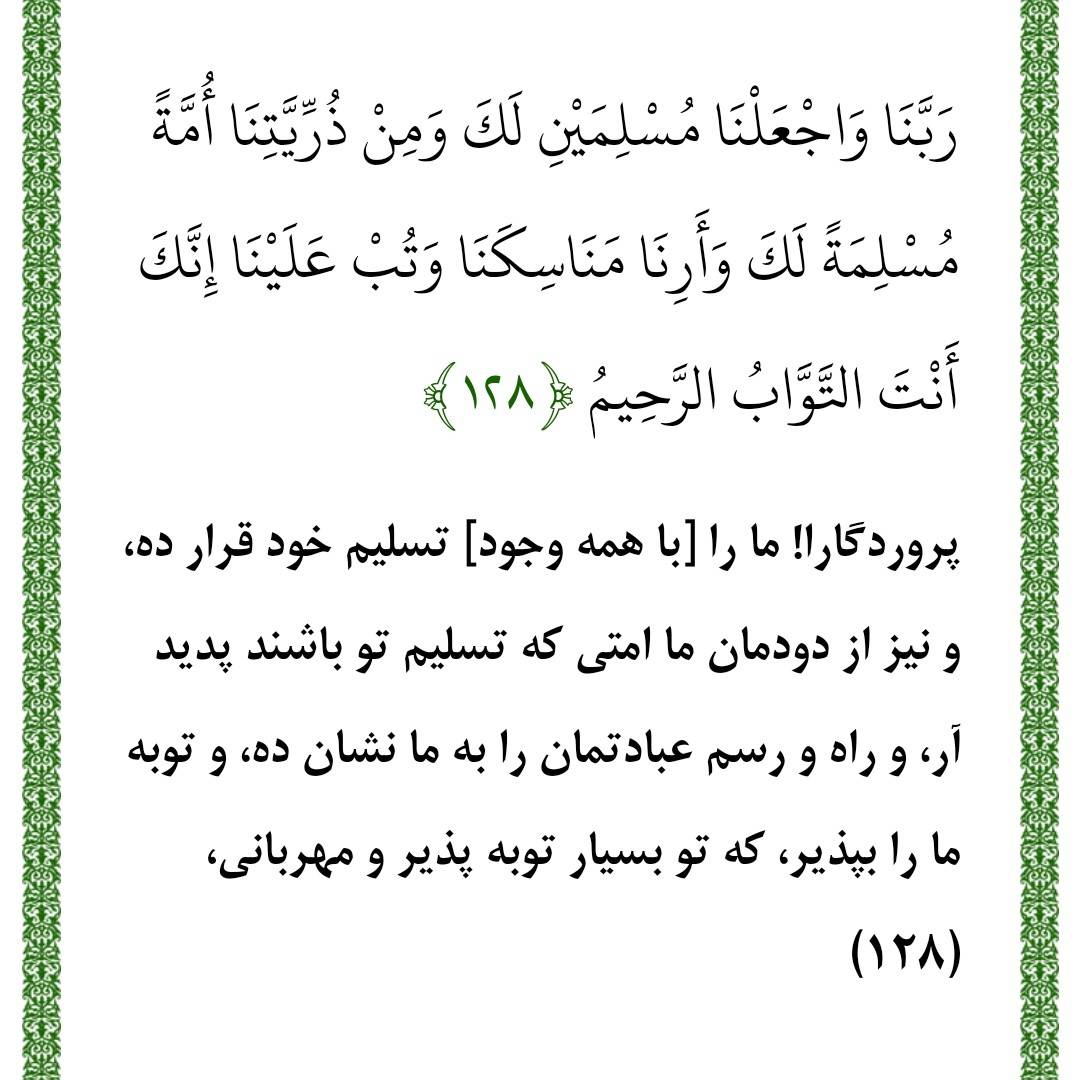 رَبَّنَا وَاجْعَلْنَا مُسْلِمَيْنِ لَكَ وَمِنْ ذُرِّيَّتِنَا أُمَّةً
مُسْلِمَةً لَكَ وَأَرِنَا مَنَاسِكَنَا وَتُبْ عَلَيْنَا إِنَّكَ
أَنْتَ التَّوَّابُ الرَّحِيمُ ﴿١٢٨﴾
پروردگارا! ما را [با همه وجود] تسلیم خود قرار ده،
و نیز از دودمان ما امتی که تسلیم تو باشند پدید
آر، و راه و رسم عبادتمان را به ما نشان ده، و توبه
ما را بپذیر، که تو بسیار توبه پذیر و مهربانی،
(۱۲۸)